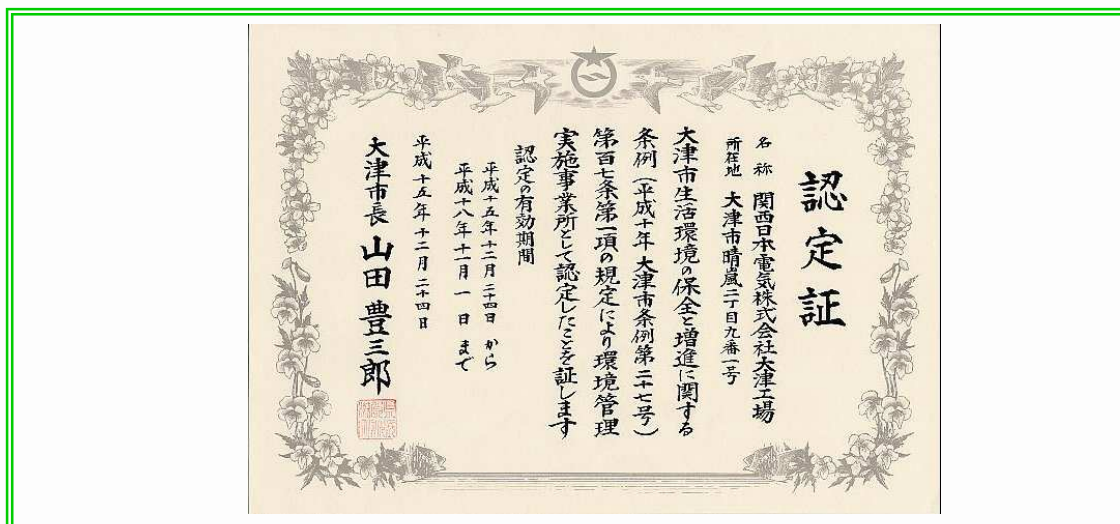 認定証
名称 関西日本電気株式会社大津工場
所在地 大津市晴嵐二丁目九番一号
大津市生活環境の保全と増進に関する
条例（平成十年大津市条例第二十七号）
第百七条第一項の規定により環境管理
実施事業所として認定したことを証します
認定の有効期間
平成十五年十二月二十四日から
平成十八年十一月一日まで
平成十五年十二月二十四日
大津市長 山田豊三郎